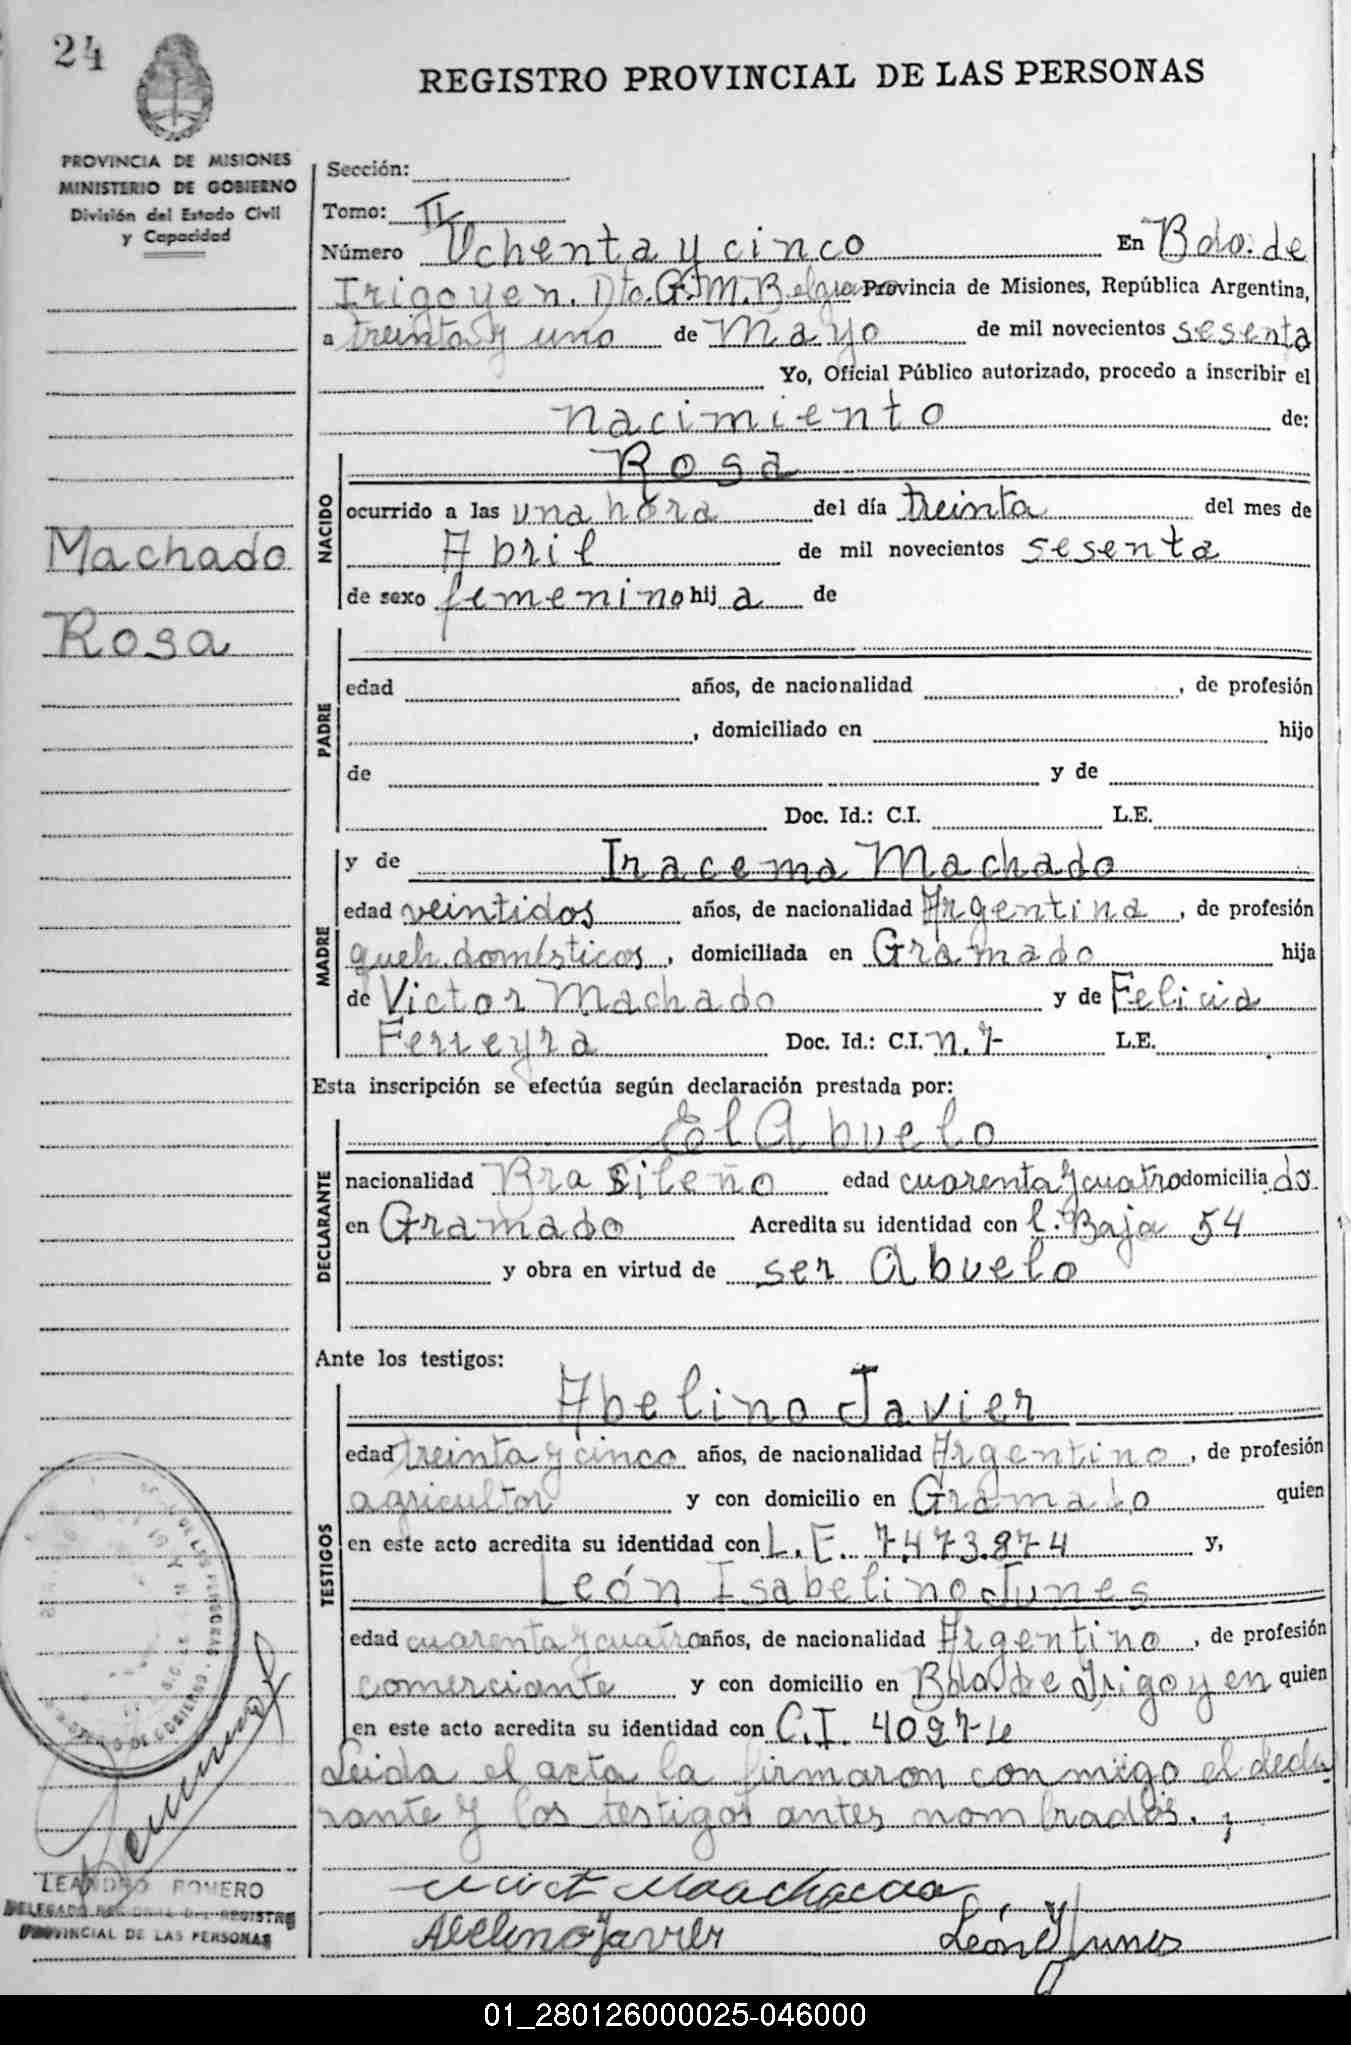 24
REGISTRO PROVINCIAL DE LAS PERSONAS
PROVINCIA DE MISIONES
MINISTERIO DE GOBIERNO
División del Estado Civil
y Capacidad
Sección:
Tomo: II
Número Ochenta y cinco En Bdo. de
Irigoyen. Dto. G. M. Belgrano Provincia de Misiones, República Argentina,
a treinta y uno de Mayo de mil novecientos sesenta
Yo, Oficial Público autorizado, procedo a inscribir el
nacimiento de:
Machado
Rosa
NACIDO
Rosa
ocurrido a las una hora del día treinta del mes de
Abril de mil novecientos sesenta
de sexo femenino hij a de
PADRE
edad años, de nacionalidad , de profesión
, domiciliado en hijo
de y de
Doc. Id.: C.I. L.E.
MADRE
y de Iracema Machado
edad veintidos años, de nacionalidad Argentina , de profesión
queh. domésticos , domiciliada en Gramado hija
de Victor Machado y de Felicia
Ferreyra Doc. Id.: C.I. L.E.
Esta inscripción se efectúa según declaración prestada por:
DECLARANTE
El Abuelo
nacionalidad Brasileño edad cuarenta y cuatro domicilia do
en Gramado Acredita su identidad con C. Baja 54
y obra en virtud de ser Abuelo
Ante los testigos:
TESTIGOS
Abelino Javier
edad treinta y cinco años, de nacionalidad Argentino , de profesión
agricultor y con domicilio en Gramado quien
en este acto acredita su identidad con L.E. 7.473.874 y,
León Isabelino Junes
edad cuarenta y cuatro años, de nacionalidad Argentino , de profesión
comerciante y con domicilio en Bdo. de Irigoyen quien
en este acto acredita su identidad con C.I.
Leida el acta la firmaron conmigo el decla
rante y los testigos antes nombrados.
Machado
Abelino Javier
León Y Junes
LEANDRO ROMERO
DELEGADO REGIONAL DEL REGISTRO
PROVINCIAL DE LAS PERSONAS
01_280126000025-046000